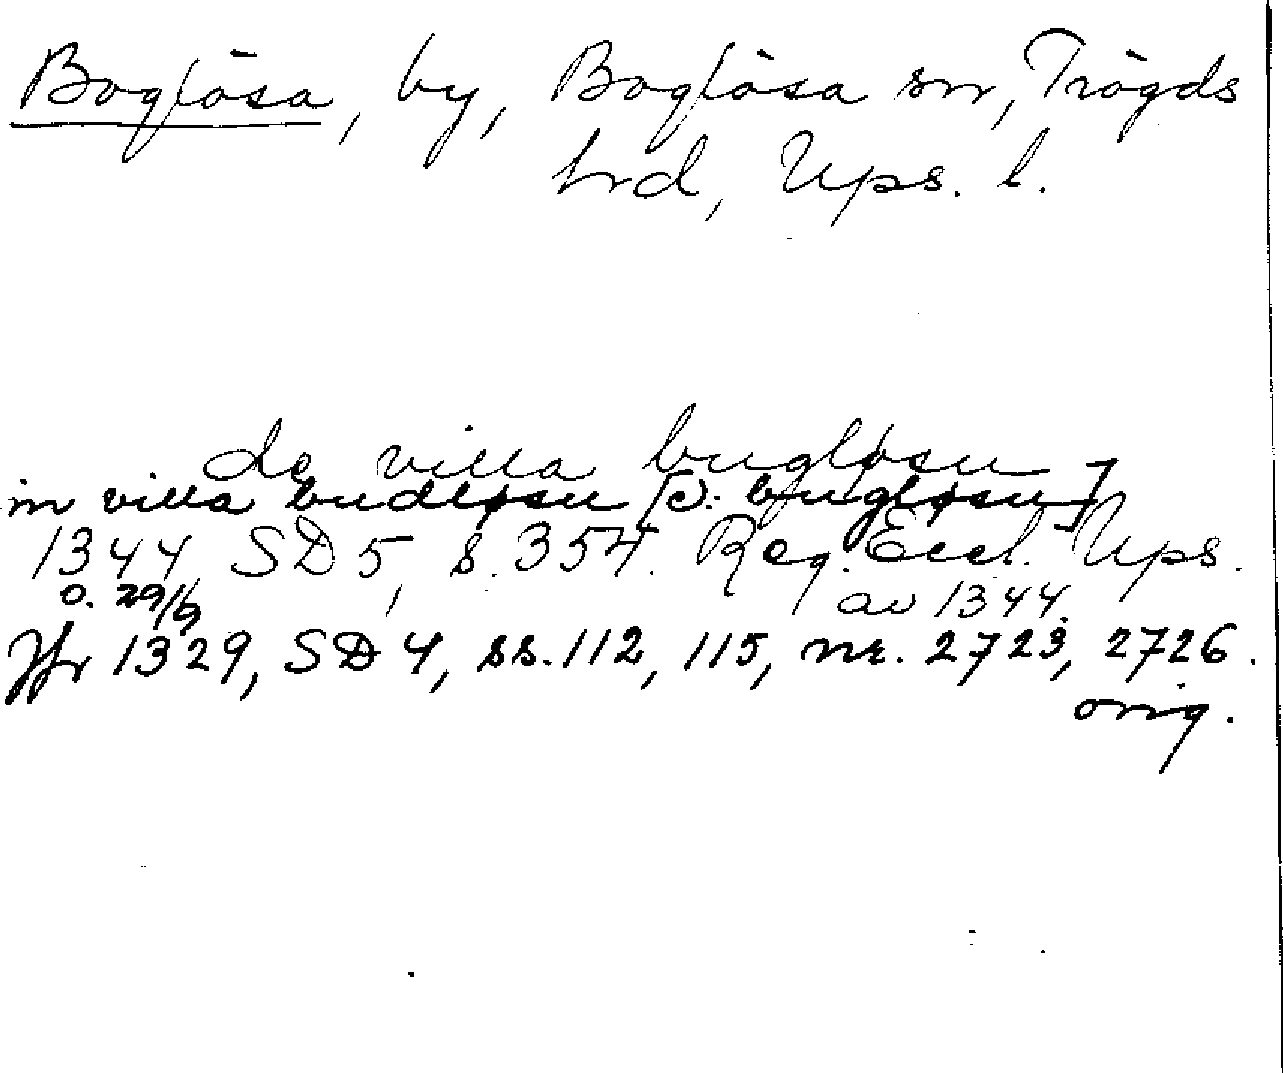 Boglösa, by, Boglösa sn, Trögds
hrd, Ups. l.
de villa bugløsu
in villa budløsu [ɔ: bugløsu]
1344, SD 5, s. 354. Reg. Eccl. Ups.
o. 29/9 av 1344.
Jfr 1329, SD 4, ss. 112, 115, nr. 2723, 2726.
orig.